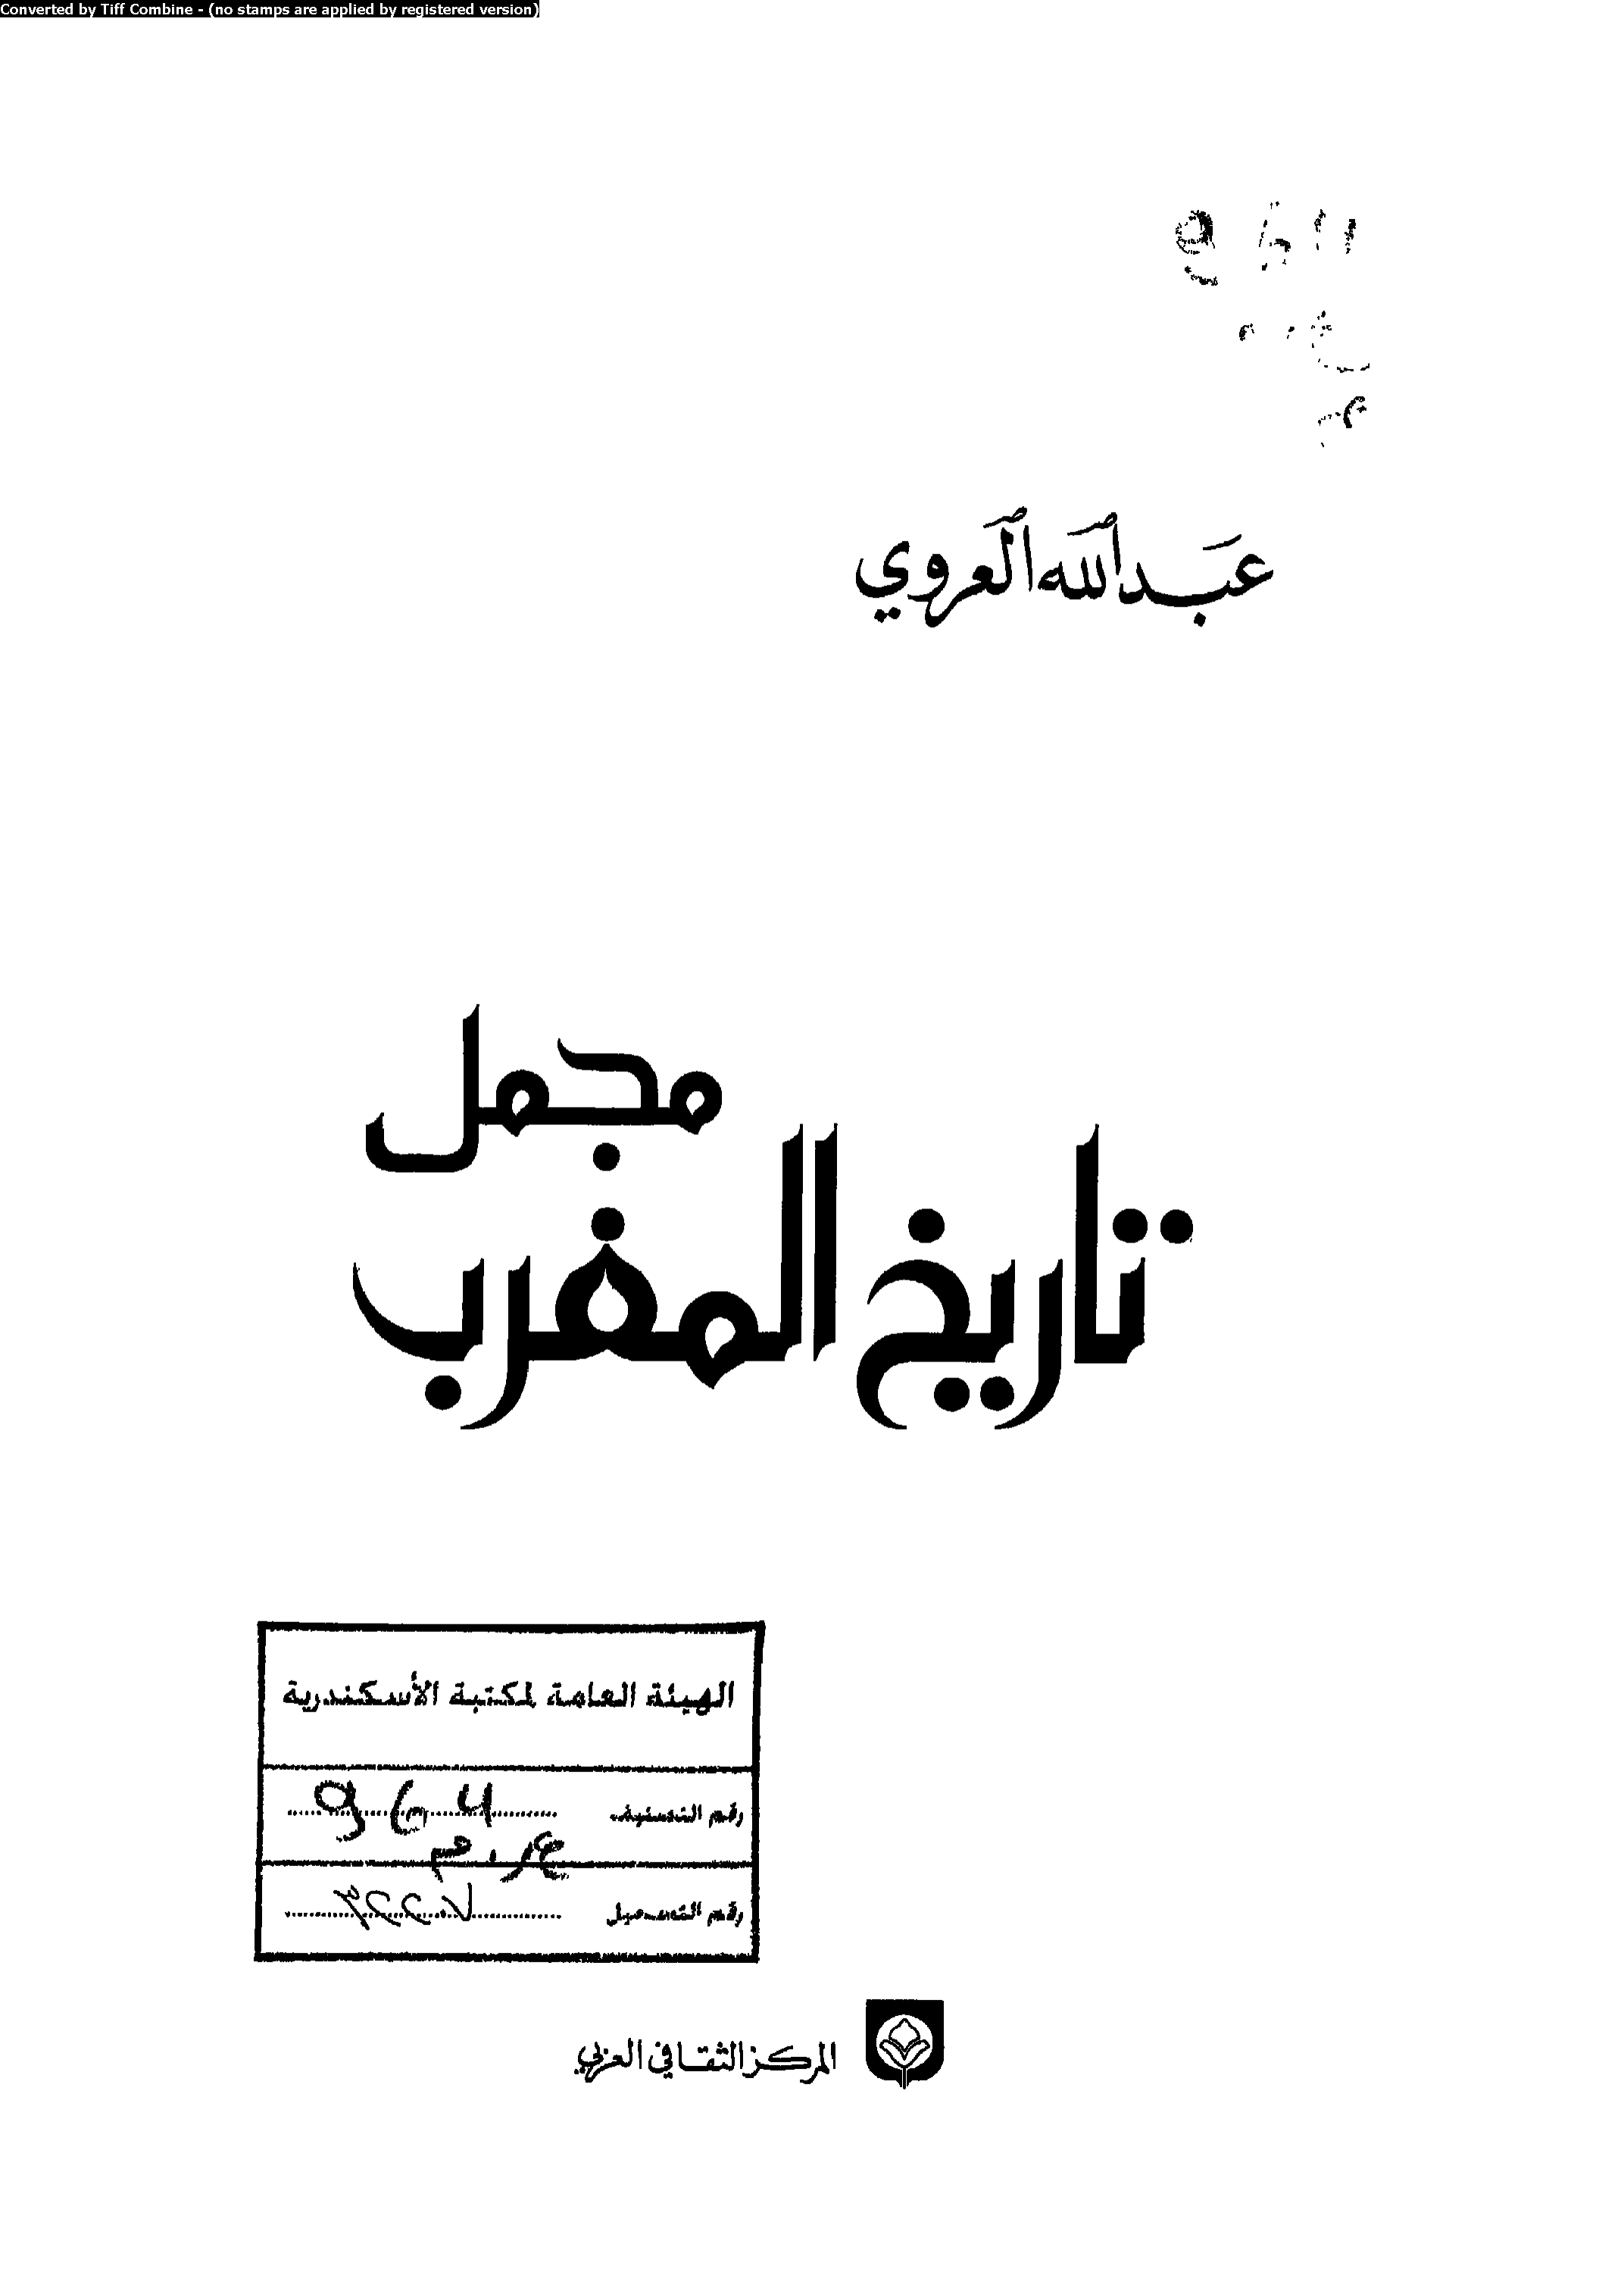 Converted by Tiff Combine - (no stamps are applied by registered version)
عبد الله العروي
مجمل
تاريخ المغرب
الهيئة العامة لمكتبة الأسكندرية
رقم التصنيف
رقم التسجيل
المركز الثقافي العربي